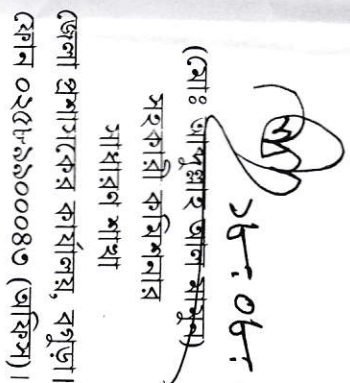 ১৮.০৮.
(মোঃ আব্দুল্লাহ আল মামুন)
সহকারী কমিশনার
সাধারণ শাখা
জেলা প্রশাসকের কার্যালয়, বগুড়া।
ফোন ০২৫৮৯৯০০০৪৩ (অফিস)।